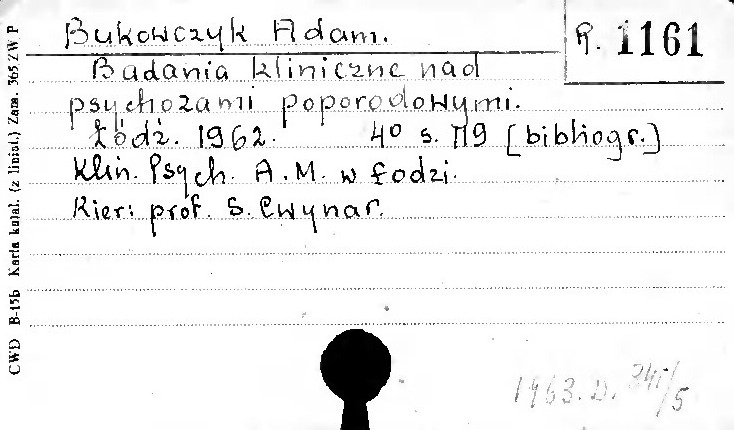 Bukowczyk Adam.
R. 1161
Badania kliniczne nad
psychozami poporodowymi.
Łódź. 1962. 4° s. 119 [bibliogr.]
Klin. Psych. A.M. w Łodzi.
Kier: prof. S. Cwynar.
1963. D. 341/5
CWD B-15b Karta katal. (z liniat.) Zam. 365 ZWP